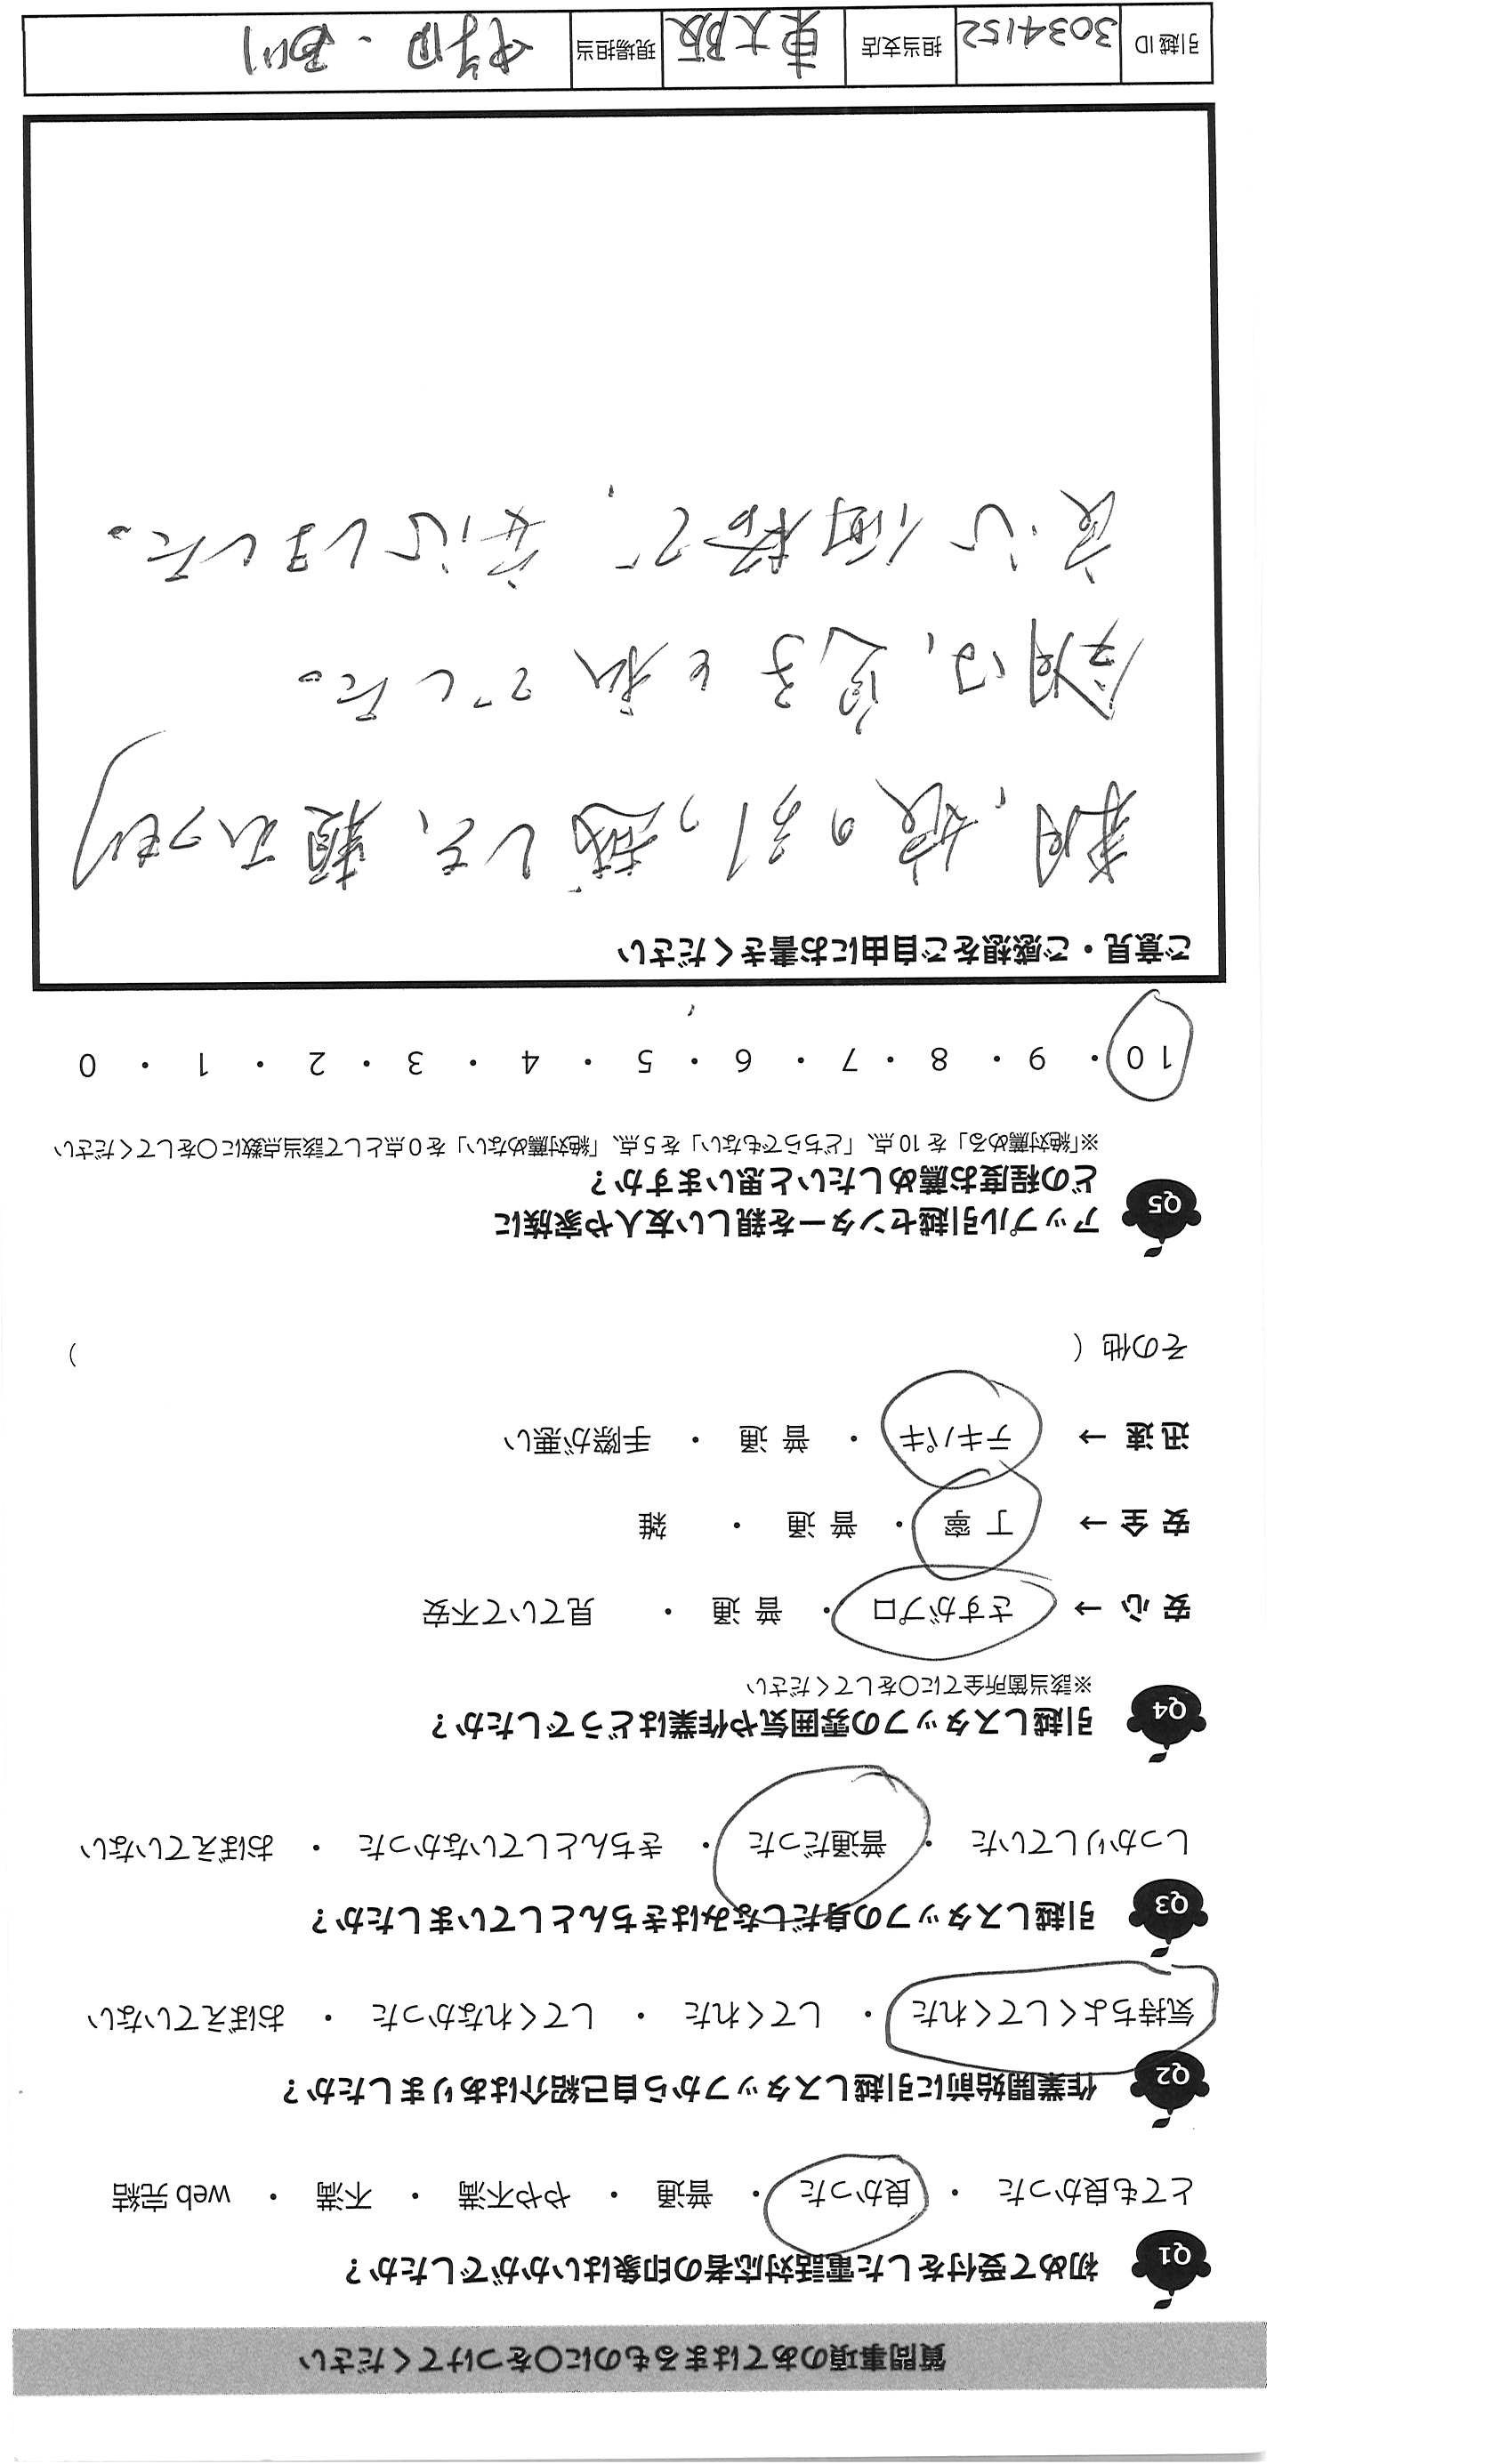 質問事項のあてはまるものに○をつけてください
Q1 初めて受付をした電話対応者の印象はいかがでしたか？
とても良かった ・ 良かった ・ 普通 ・ やや不満 ・ 不満 ・ web 完結
Q2 作業開始前に引越しスタッフから自己紹介はありましたか？
気持ちよくしてくれた ・ してくれた ・ してくれなかった ・ おぼえていない
Q3 引越しスタッフの身だしなみはきちんとしていましたか？
しっかりしていた ・ 普通だった ・ きちんとしていなかった ・ おぼえていない
Q4 引越しスタッフの雰囲気や作業はどうでしたか？
※該当箇所全てに○をしてください
安 心 → さすがプロ ・ 普 通 ・ 見ていて不安
安 全 → 丁 寧 ・ 普 通 ・ 雑
迅 速 → テキパキ ・ 普 通 ・ 手際が悪い
その他（ ）
Q5 アップル引越センターを親しい友人や家族に
どの程度お薦めしたいと思いますか？
※「絶対薦める」を 10 点、「どちらでもない」を 5 点、「絶対薦めない」を 0 点として該当点数に○をしてください
10 ・ 9 ・ 8 ・ 7 ・ 6 ・ 5 ・ 4 ・ 3 ・ 2 ・ 1 ・ 0
ご意見・ご感想をご自由にお書きください
娘の引っ越しを、頼
息子と私でした。
良い価格で、安心しました。
引越 ID 3034152 担当支店 東大阪 現場担当